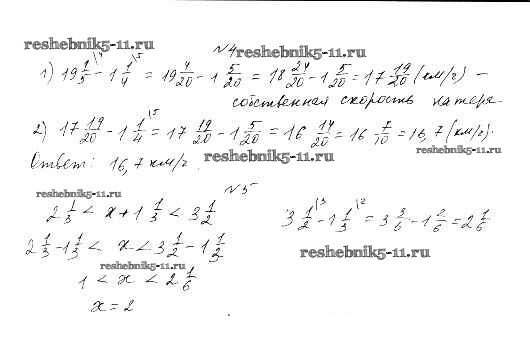 reshebnik5-11.ru
№4 reshebnik5-11.ru
1) 19 1/5 - 1 1/4 = 19 4/20 - 1 5/20 = 18 24/20 - 1 5/20 = 17 19/20 (км/г) -
собственная скорость катера.
2) 17 19/20 - 1 1/4 = 17 19/20 - 1 5/20 = 16 14/20 = 16 7/10 = 16,7 (км/г).
Ответ: 16,7 км/г.
reshebnik5-11.ru
№5
reshebnik5-11.ru
2 1/3 < x + 1 1/3 < 3 1/2
3 1/2 - 1 1/3 = 3 3/6 - 1 2/6 = 2 1/6
2 1/3 - 1 1/3 < x < 3 1/2 - 1 1/3
reshebnik5-11.ru
reshebnik5-11.ru
1 < x < 2 1/6
x = 2